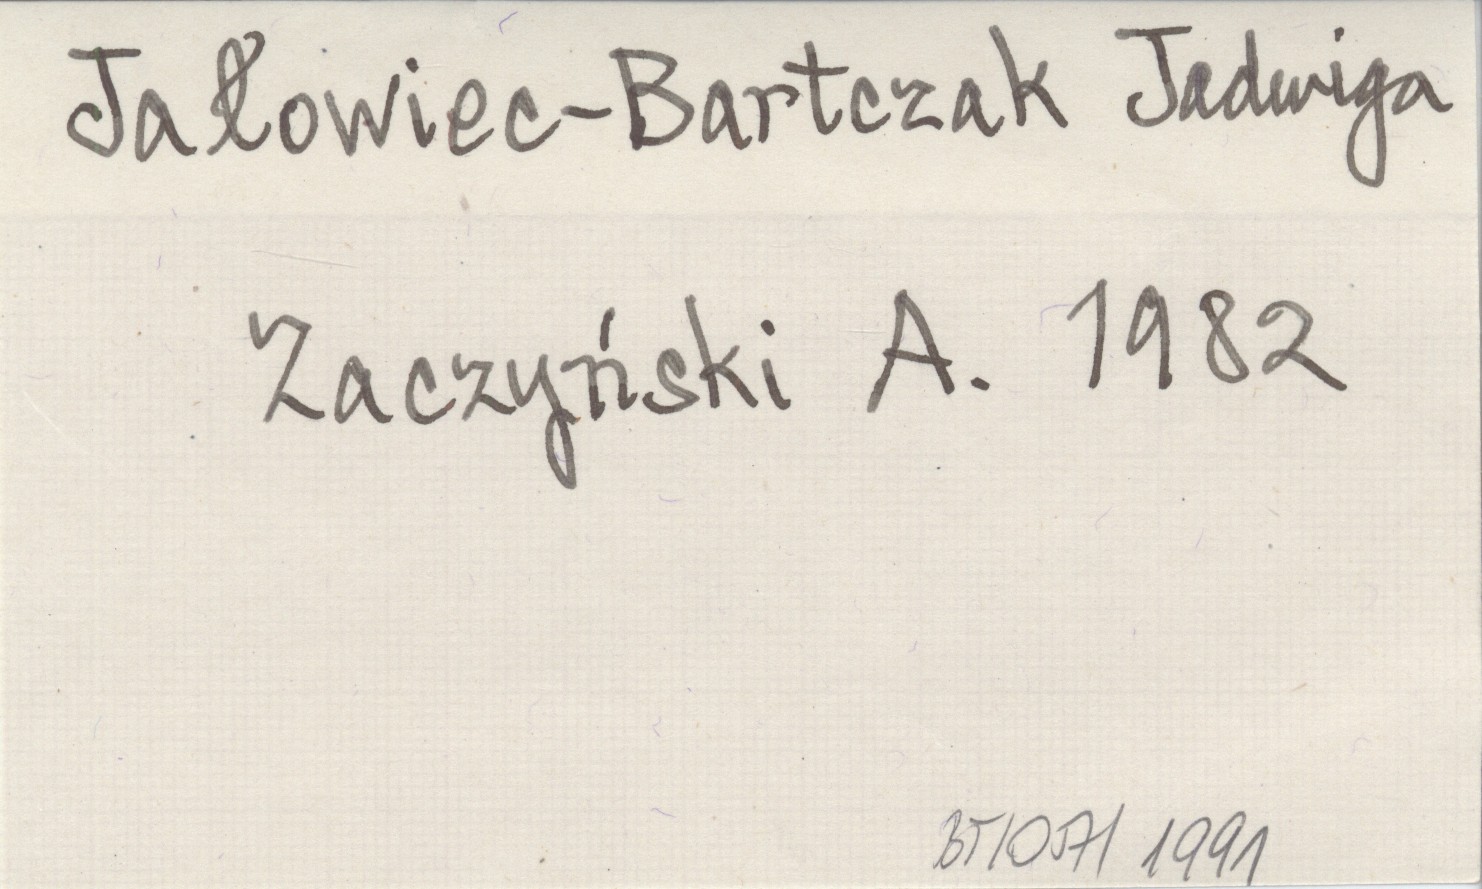 Jałowiec-Bartczak Jadwiga
Zaczyński A. 1982
BT/OJA/ 1991